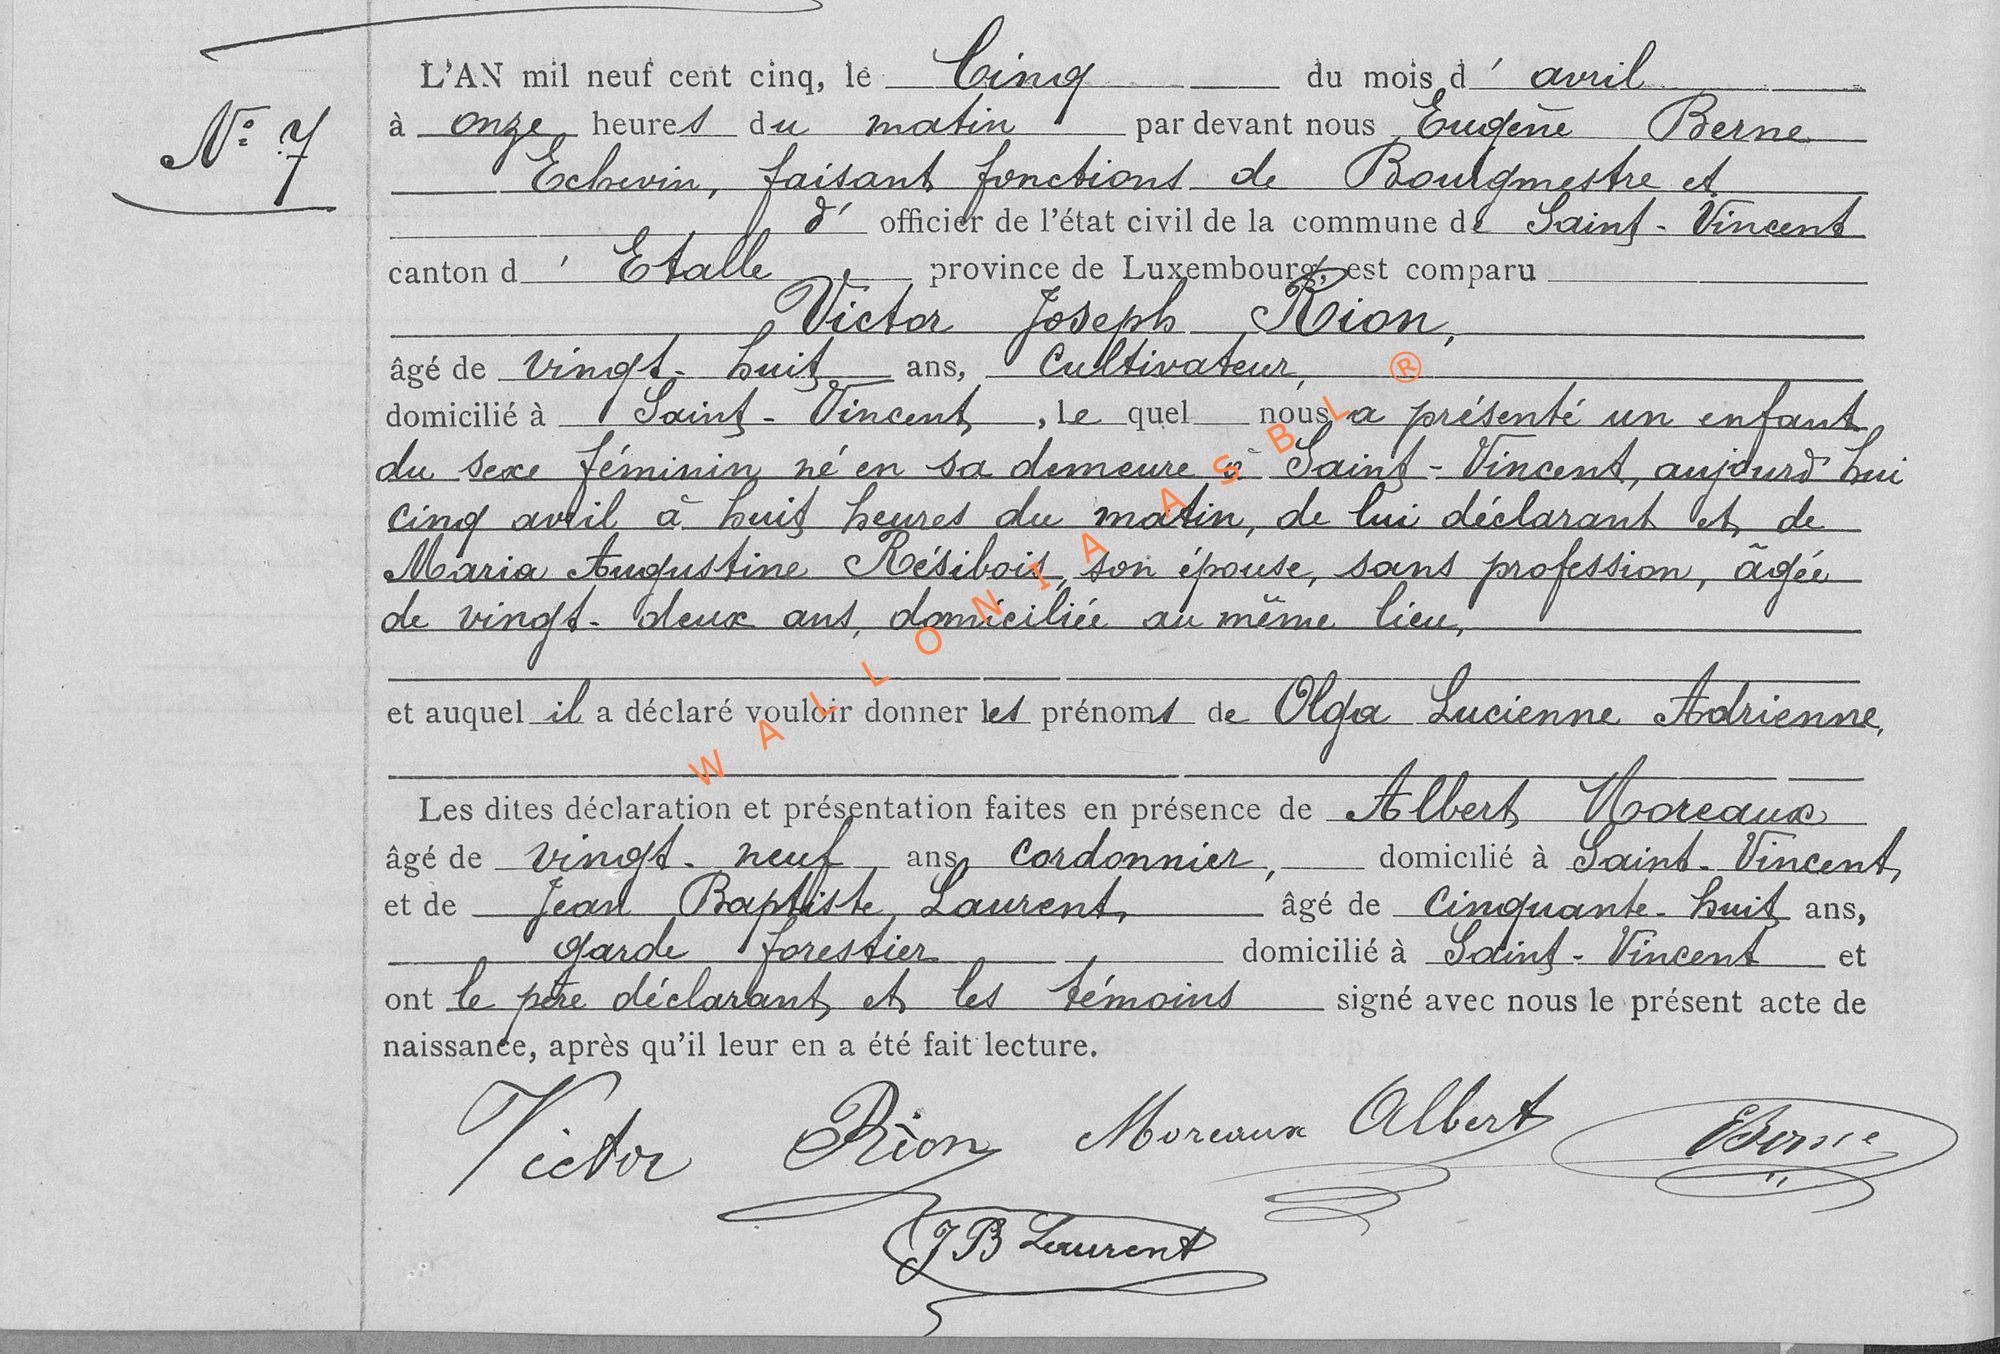 L'AN mil neuf cent cinq, le Cinq du mois d' avril
N° 7
à onze heures du matin par devant nous Eugène Berne
Echevin, faisant fonctions de Bourgmestre et
d' officier de l'état civil de la commune de Saint-Vincent
canton d' Etalle, province de Luxembourg, est comparu
Victor Joseph Rion,
âgé de vingt-huit ans, cultivateur,
domicilié à Saint-Vincent, le quel nous a présenté un enfant
du sexe féminin né en sa demeure à Saint-Vincent, aujourd'hui
cinq avril à huit heures du matin, de lui déclarant et de
Maria Augustine Résibois, son épouse, sans profession, âgée
de vingt-deux ans, domiciliée au même lieu,
et auquel il a déclaré vouloir donner les prénoms de Olga Lucienne Adrienne,
Les dites déclaration et présentation faites en présence de Albert Moreaux
âgé de vingt-neuf ans, cordonnier, domicilié à Saint-Vincent,
et de Jean Baptiste Laurent, âgé de cinquante-huit ans,
garde forestier domicilié à Saint-Vincent et
ont le père déclarant et les témoins signé avec nous le présent acte de
naissance, après qu'il leur en a été fait lecture.
Victor Rion Moreaux Albert EBerne
JB Laurent
WALLONIA ASBL ®